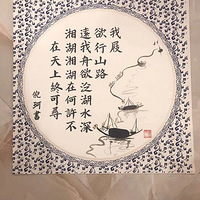 我屐欲行山路
遠我舟欲泛湖水深
湘湖湘湖在何許不
在天上終可尋
倪珂書